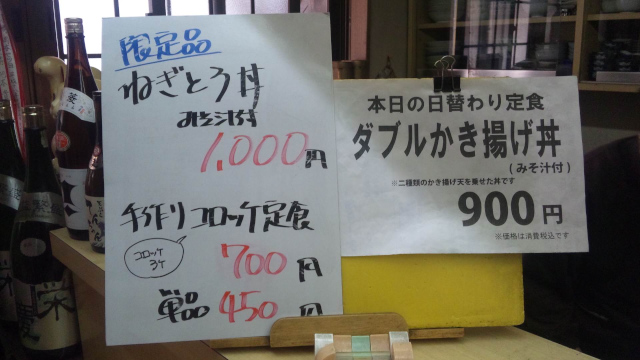 限定品
ねぎとろ丼
みそ汁付
1,000円
手作りコロッケ定食
コロッケ
3ケ
700円
単品 450円
本日の日替わり定食
ダブルかき揚げ丼
(みそ汁付)
※二種類のかき揚げ天を乗せた丼です
900円
※価格は消費税込です